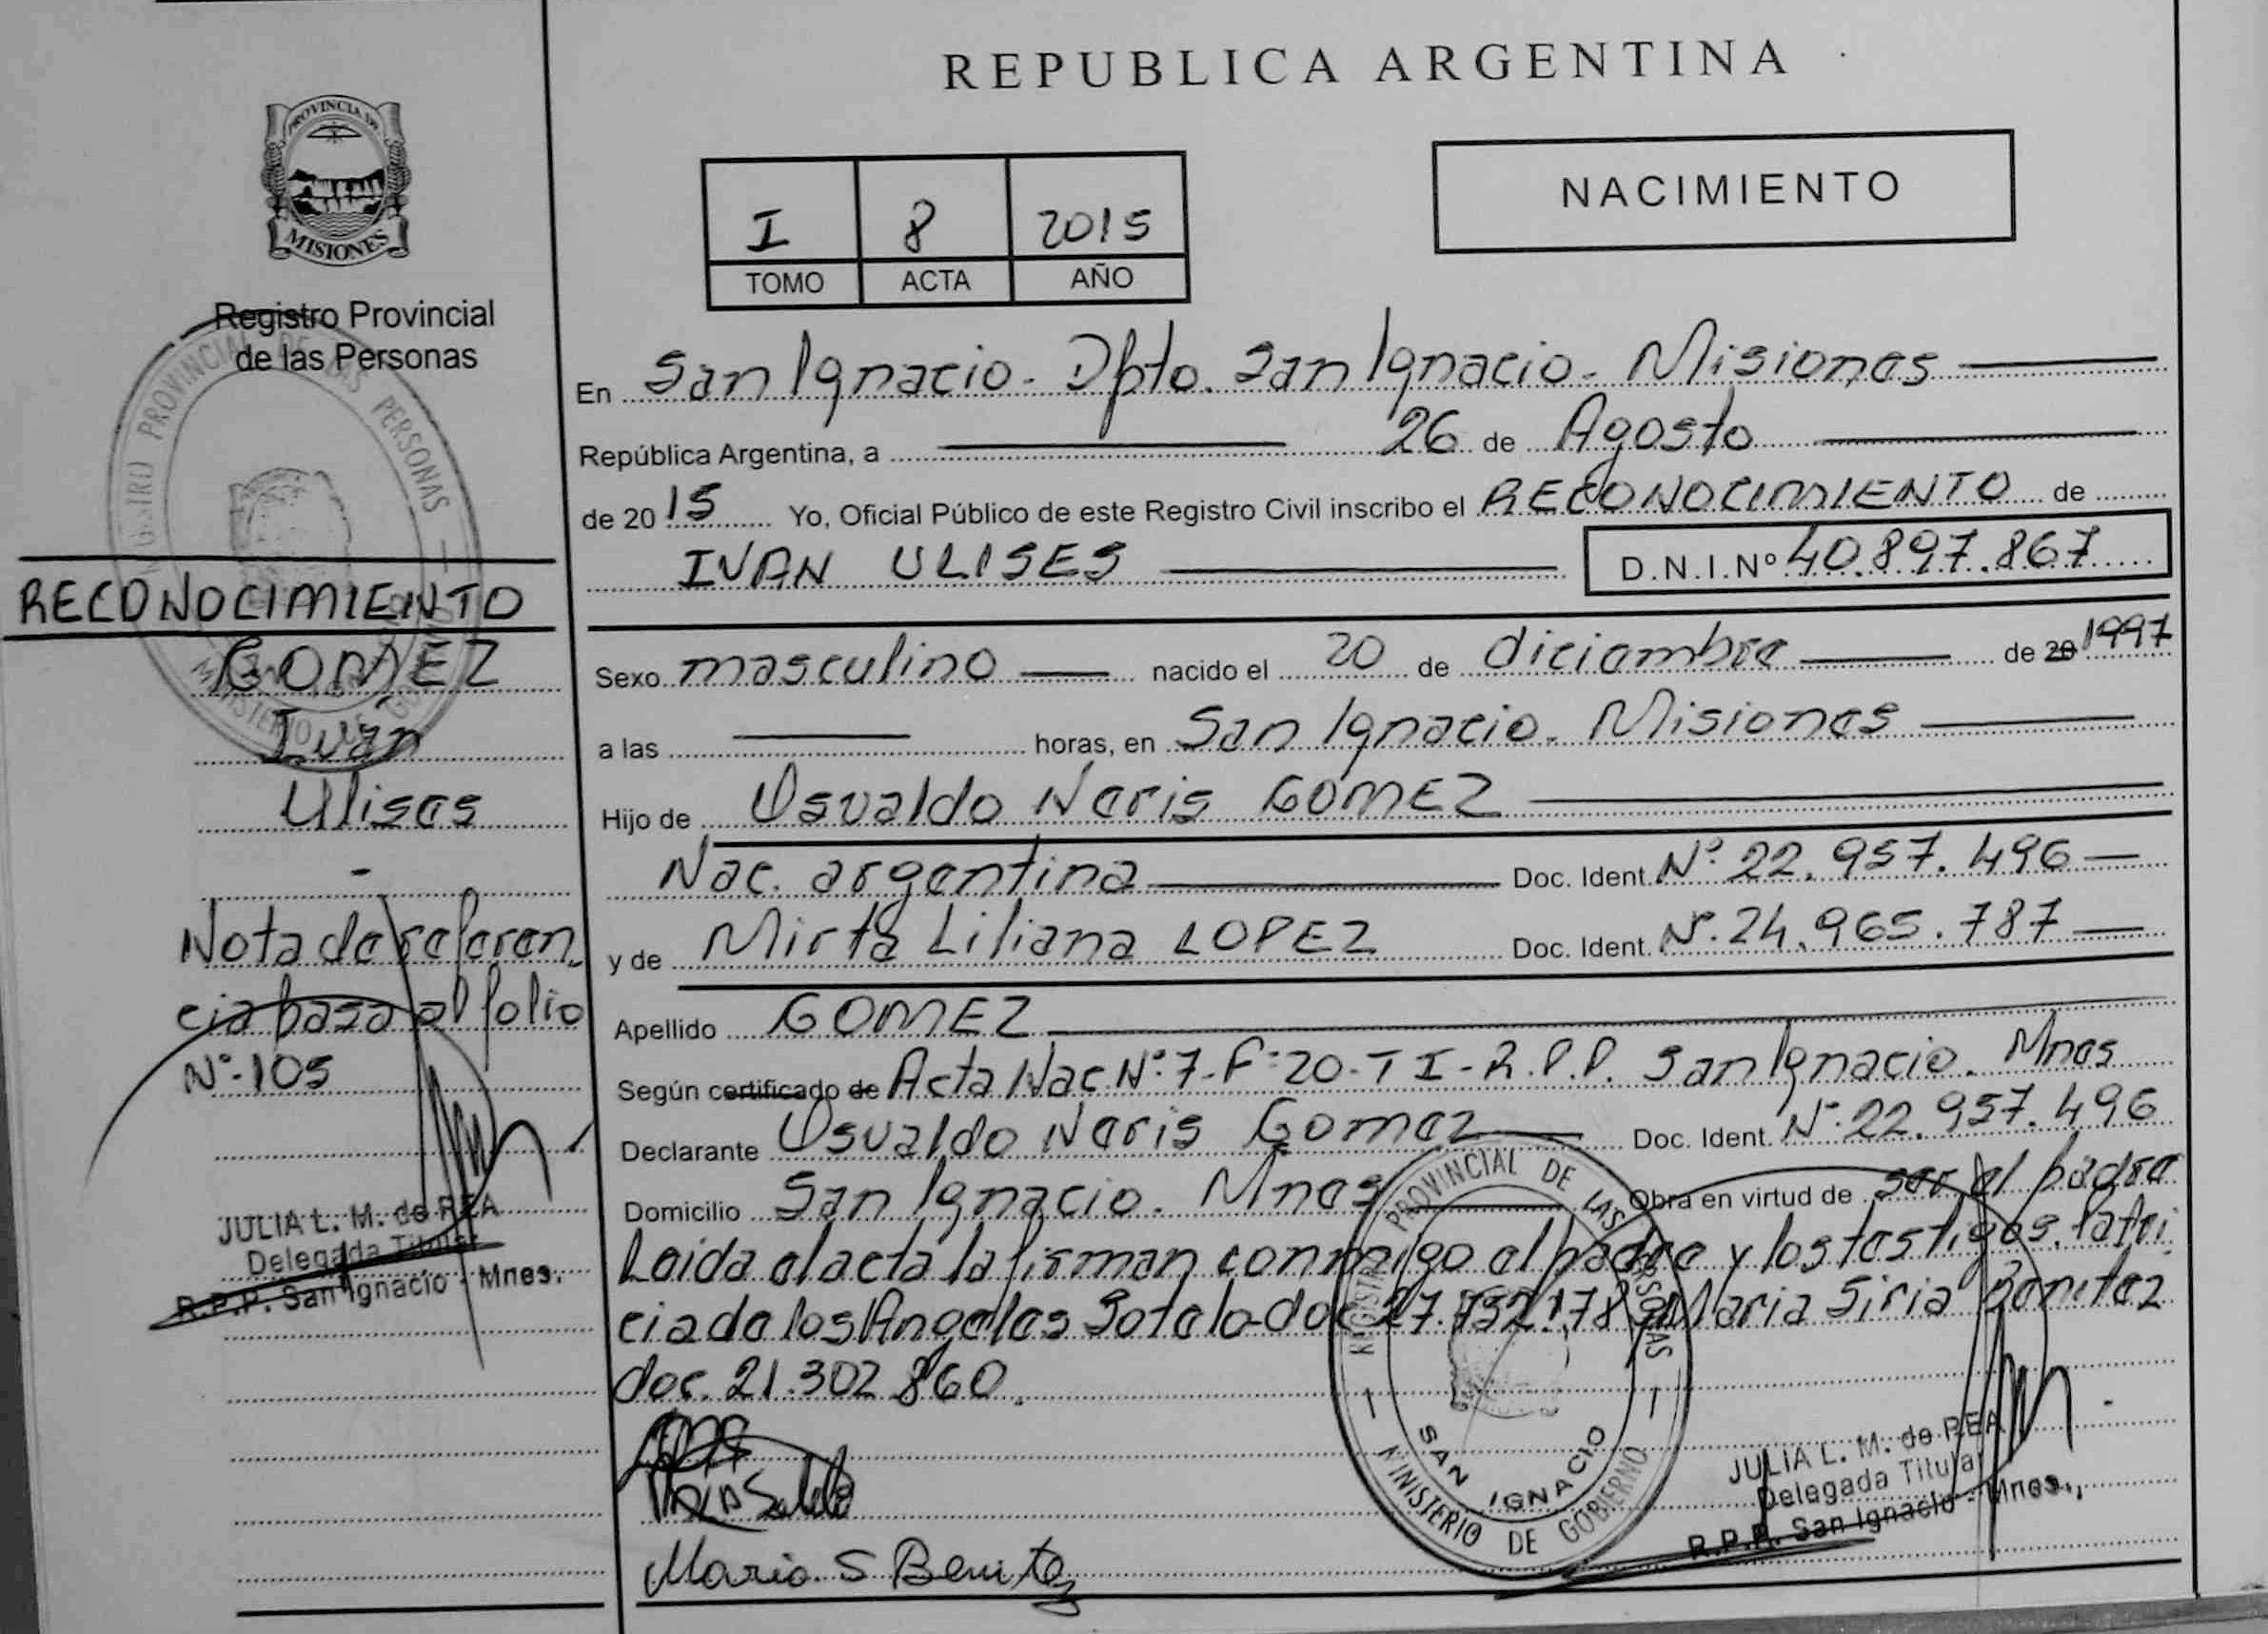 REPUBLICA ARGENTINA
PROVINCIA DE
MISIONES
Registro Provincial
de las Personas
I 8 2015
TOMO ACTA AÑO
NACIMIENTO
En San Ignacio - Dpto. San Ignacio - Misiones
República Argentina, a 26 de Agosto
de 2015 Yo, Oficial Público de este Registro Civil inscribo el RECONOCIMIENTO de
IVAN ULISES D.N.I.Nº 40.897.867
Sexo masculino nacido el 20 de diciembre de 20 1997
a las horas, en San Ignacio - Misiones
Hijo de Osvaldo Neris GOMEZ
Nac. argentina Doc. Ident. Nº 22.957.496
y de Mirta Liliana LOPEZ Doc. Ident. Nº 24.965.787
Apellido GOMEZ
Según certificado de Acta Nac Nº 7-Fº 20-T I-R.P.P. San Ignacio. Mnes
Declarante Osvaldo Neris Gomez Doc. Ident. Nº 22.957.496
Domicilio San Ignacio - Mnes Obra en virtud de ser el padre
Leida el acta la firman conmigo el padre y los testigos, Patri
cia de los Angeles Sotelo doc 27.732.178 Maria Siria Benitez
doc. 21.302.860
Maria S Benitez
RECONOCIMIENTO
GOMEZ
Iván
Ulises
-
Nota de referen
cia pasa al folio
Nº 105
JULIA L. M. de REA
Delegada Titular
R.P.P. San Ignacio - Mnes.
REGISTRO PROVINCIAL DE LAS PERSONAS
MINISTERIO DE GOBIERNO
REGISTRO PROVINCIAL DE LAS PERSONAS
SAN IGNACIO
MINISTERIO DE GOBIERNO
JULIA L. M. de REA
Delegada Titular
R.P.P. San Ignacio - Mnes.